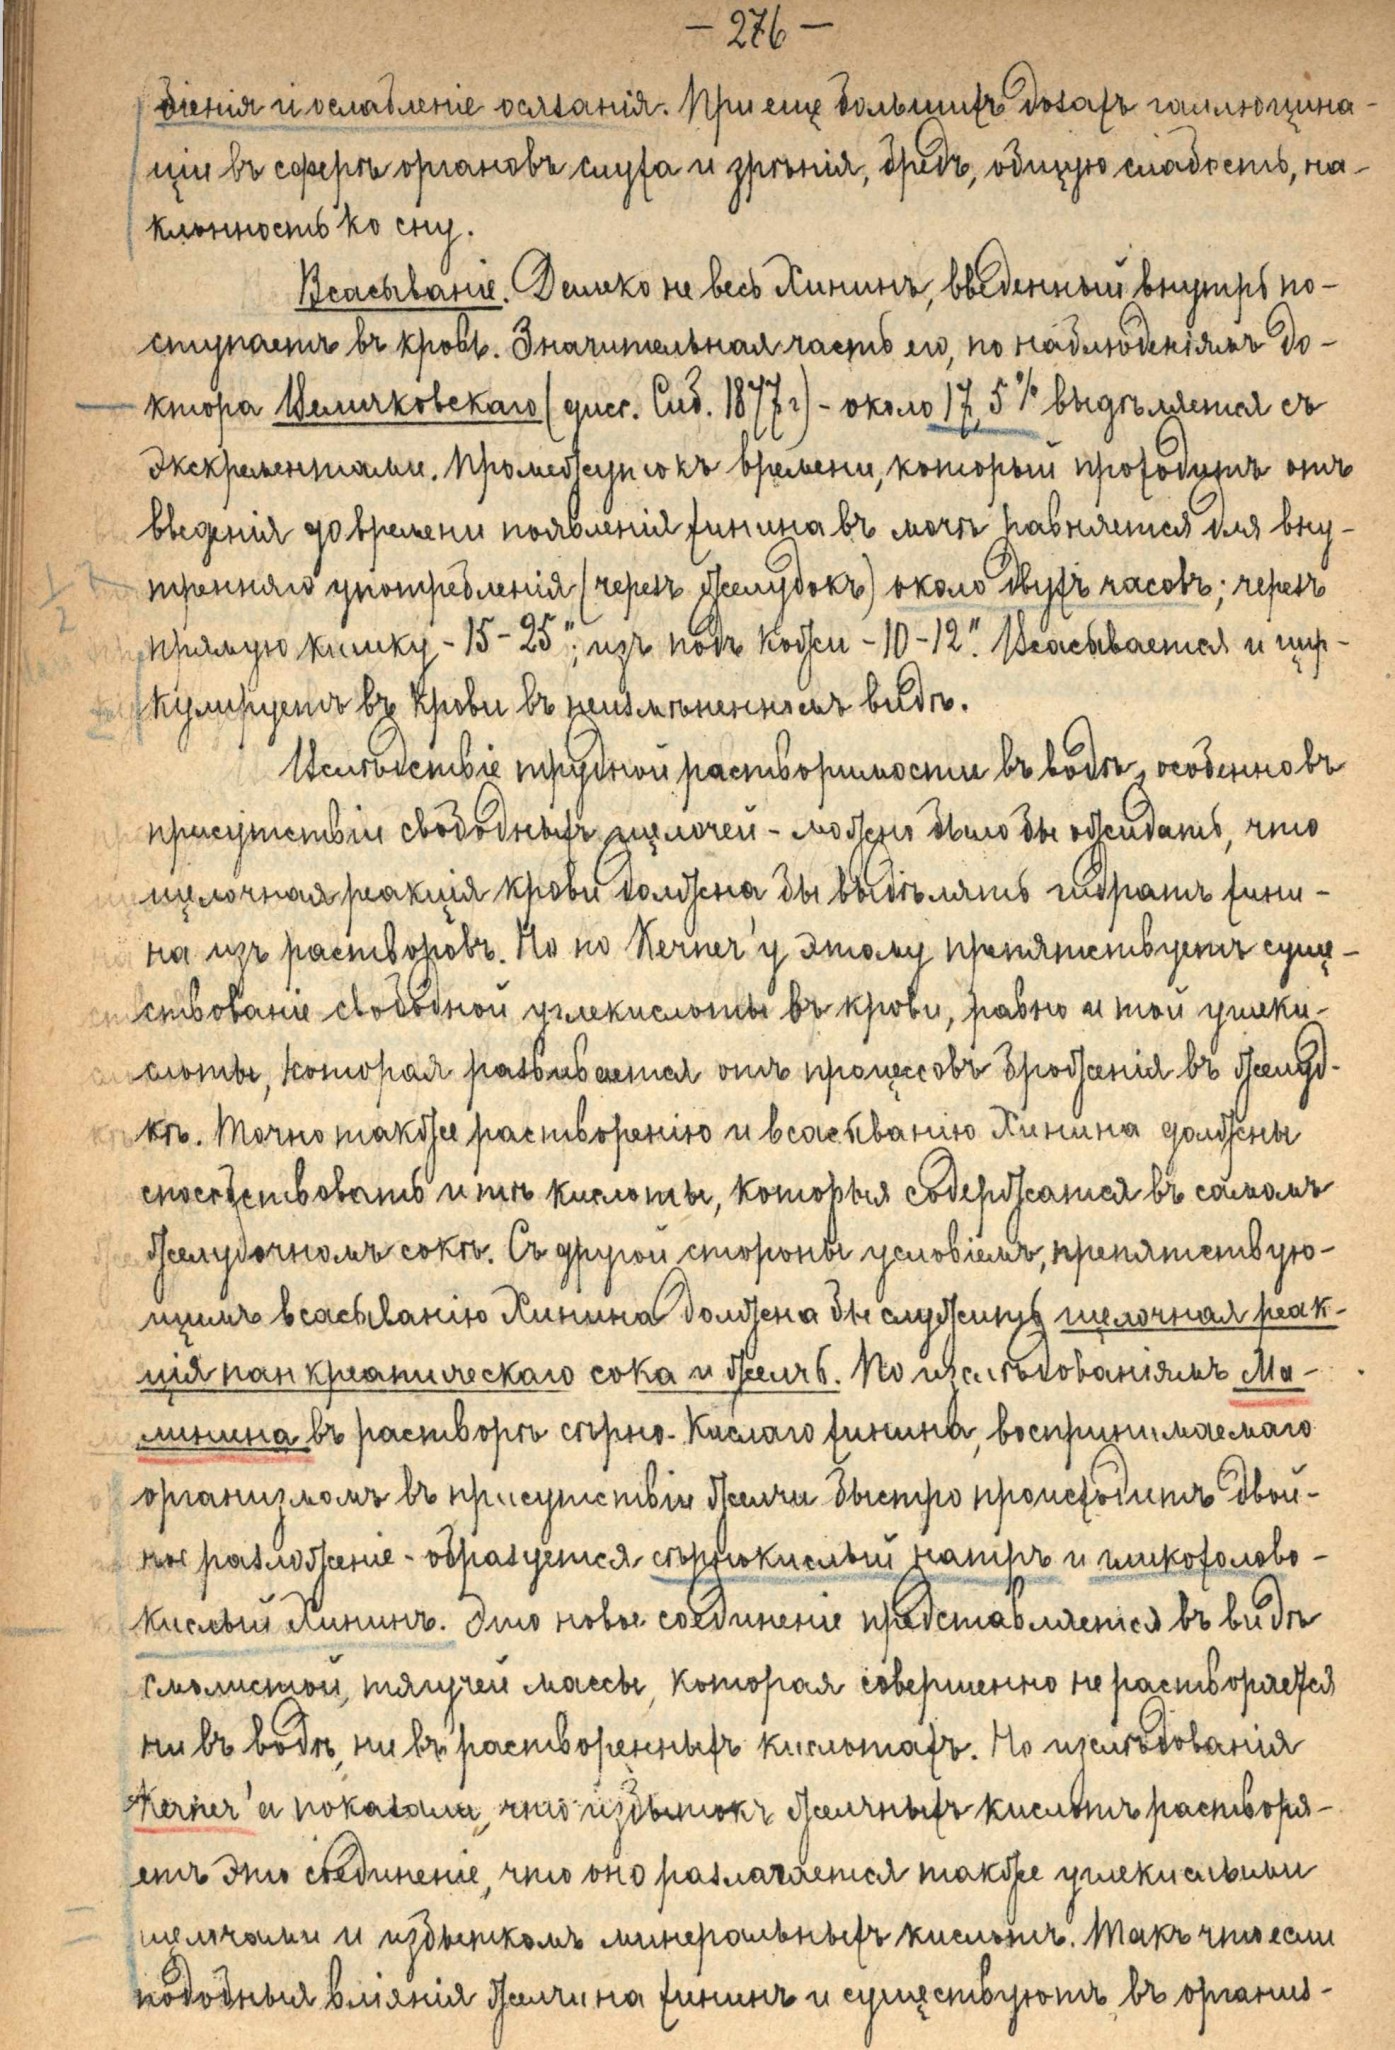 — 276 —
біенія и ослабленіе осязанія. При еще большихъ дозахъ галлюцина-
ціи въ сферѣ органовъ слуха и зрѣнія, бредъ, общую слабость, на-
клонность ко сну.
Всасываніе. Далеко не весь Хининъ, введенный внутрь по-
ступаетъ въ кровь. Значительная часть его, по наблюденіямъ до-
ктора Величковскаго (дисс. Спб. 1877 г) - около 17,5% выдѣляется съ
экскрементами. Промежутокъ времени, который проходитъ отъ
введенія до времени появленія хинина въ мочѣ равняется для вну-
тренняго употребленія (черезъ желудокъ) около двухъ часовъ; черезъ
прямую кишку - 15 - 25"; изъ подъ кожи - 10 - 12". Всасывается и цир-
кулируетъ въ крови въ неизмѣненномъ видѣ.
Вслѣдствіе трудной растворимости въ водѣ, особенно въ
присутствіи свободныхъ щелочей - можно было бы ожидать, что
щелочная реакція крови должна бы выдѣлять гидратъ хини-
на изъ растворовъ. Но по Kerner'у этому препятствуетъ суще-
ствованіе свободной углекислоты въ крови, равно и той углеки-
слоты, которая развивается отъ процессовъ броженія въ желуд-
кѣ. Точно также растворенію и всасыванію Хинина должны
способствовать и тѣ кислоты, которыя содержатся въ самомъ
желудочномъ сокѣ. Съ другой стороны условіемъ, препятствую-
щимъ всасыванію Хинина должна бы служить щелочная реак-
ція панкреатическаго сока и желчь. По изслѣдованіямъ Ма-
линина въ растворѣ сѣрно-кислаго хинина, воспринимаемаго
организмомъ въ присутствіи желчи быстро происходитъ двой-
ное разложеніе - образуется сѣрнокислый натръ и гликохолево-
кислый Хининъ. Это новое соединеніе представляется въ видѣ
смолистой, тягучей массы, которая совершенно не растворяется
ни въ водѣ, ни въ растворенныхъ кислотахъ. Но изслѣдованія
Kerner'а показали, что избытокъ желчныхъ кислотъ растворя-
етъ это соединеніе, что оно разлагается также углекислыми
щелочами и избыткомъ минеральныхъ кислотъ. Такъ что если
подобныя вліянія желчи на хининъ и существуютъ въ организ-